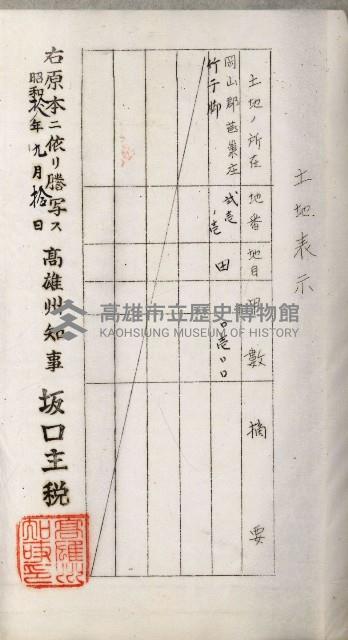 土地表示
土地ノ所在
地番
地目
甲數
摘要
岡山郡燕巢庄
竹子脚
貳壱ノ壱
田
〇壱〇〇
右原本ニ依リ謄写ス
昭和拾年九月拾日
高雄州知事 坂口主税
高雄州知事印
高雄市立歷史博物館
KAOHSIUNG MUSEUM OF HISTORY